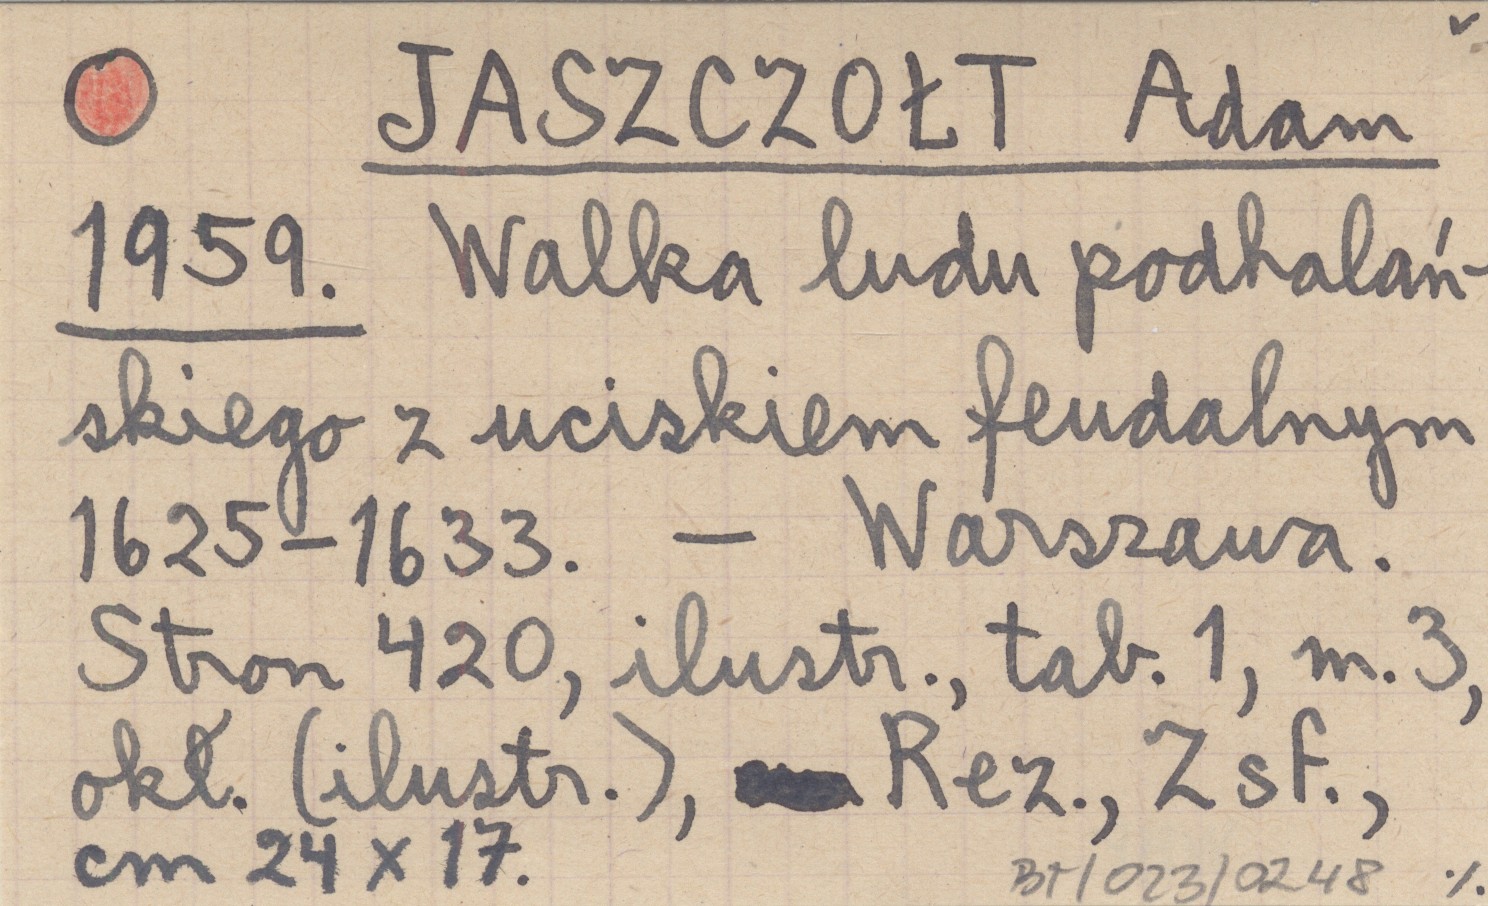 JASZCZOŁT Adam
1959. Walka ludu podhalań-
skiego z uciskiem feudalnym
1625-1633. — Warszawa.
Stron 420, ilustr., tab. 1, m. 3,
okł. (ilustr.), Rez., Zsf.,
cm 24 x 17.
BT/023/0248 ./.